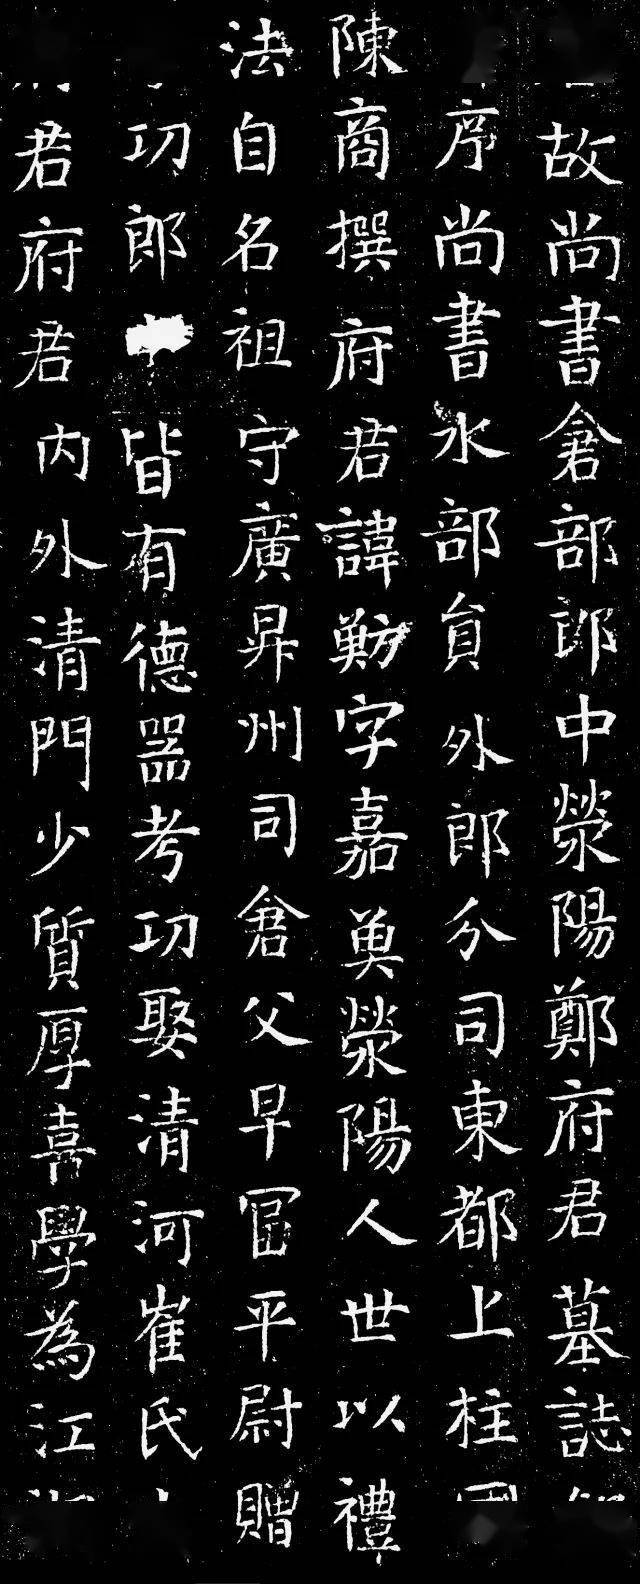 故尚書倉部郎中滎陽鄭府君墓誌
序尚書水部負外郎分司東都上柱國
陳商撰府君諱魴字嘉魚滎陽人世以禮
法自名祖守廣昇州司倉父早冨平尉贈
功郎皆有德器考功娶清河崔氏
君府君內外清門少質厚喜學為江